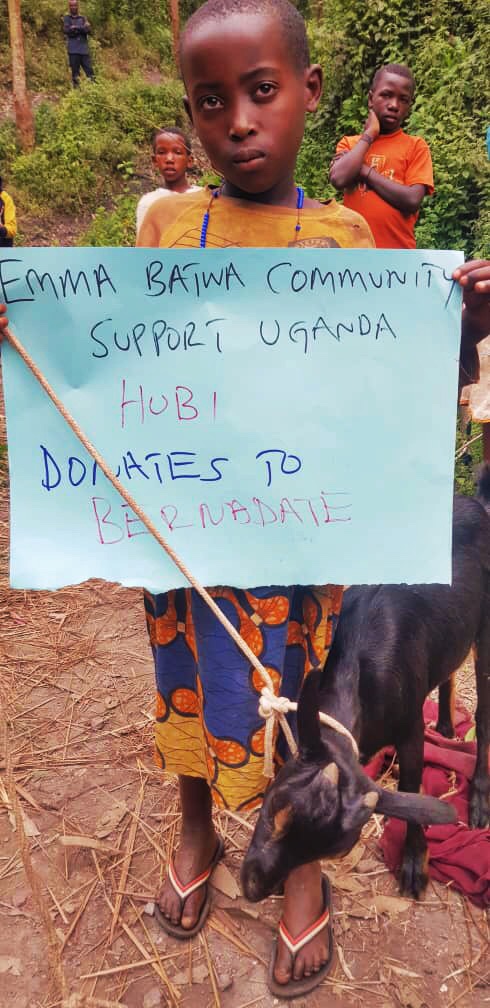 EMMA BATWA COMMUNITY
SUPPORT UGANDA
HUBI
DONATES TO
BERNADATE